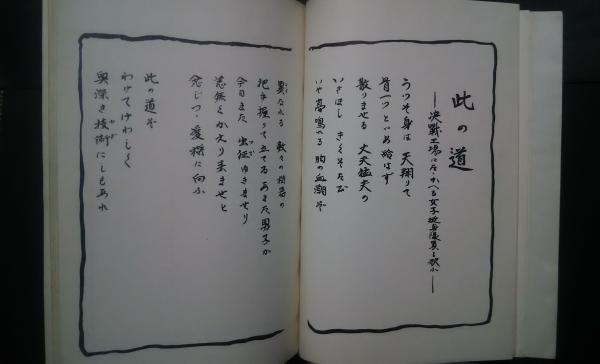 此の道
―決戦工場にたゝかへる女子挺身隊員を歌ふ―
うつそ身は 天翔りて
骨一つとどめ給はず
散りませる 丈夫猛夫の
いさほし きくそたび
いや高鳴る 胸の血潮ぞ
異なれる 数々の機器の
把手握って立てる あまた男子が
今日また 出征ゆきませり
恙無くかえり来ませと
念じつゝ 愛機に向ふ
此の道ぞ
わけてけわしく
奥深き技術にしもあれ